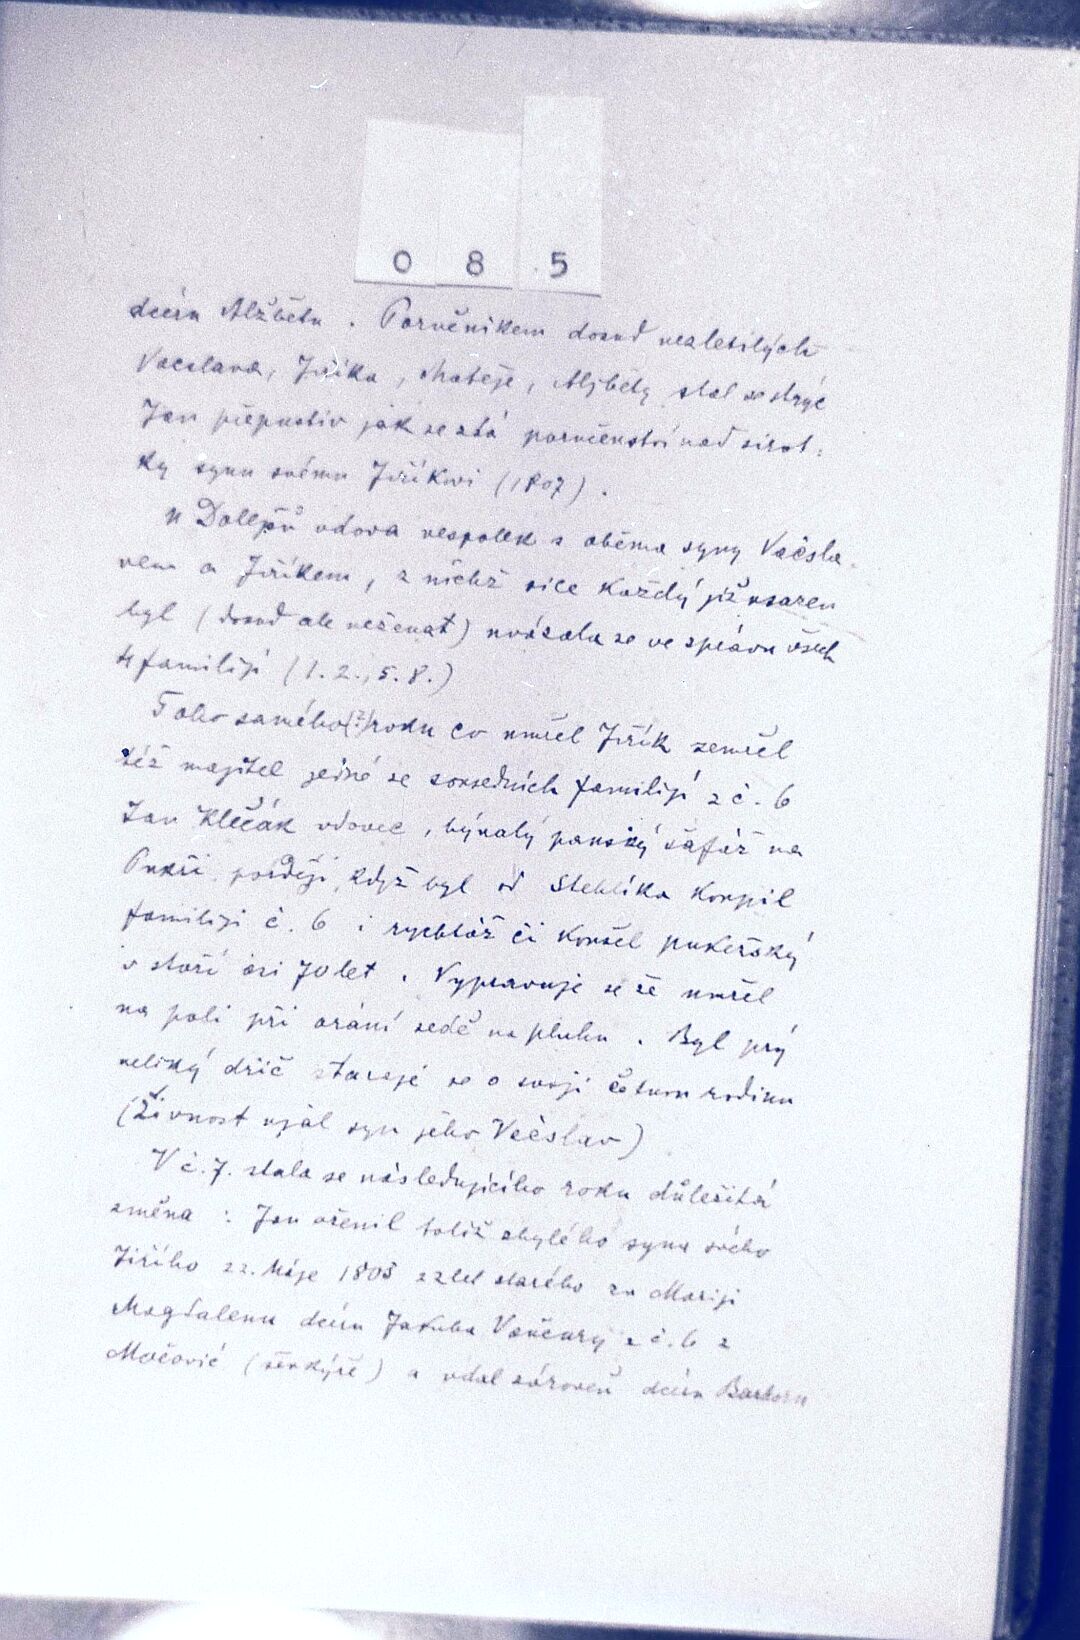 0 8 5
dceru Alžbětu. Poručníkem dosud nezletilých
Vácslava, Jiříka, Matěje, Aljběty stal se strýc
Jan připustiv jak se zdá poručenství nad sirot-
ky synu svému Jiříkovi (1807).
U Dollejšů vdova vespolek s oběma syny Václa-
vem a Jiříkem, z nichž sice každý již usazen
byl (dosud ale neženat) uvázala se ve správu všech
4 familijí (1. 2., 5. 8.)
Toho samého(?) roku co umřel Jiřík zemřel
též majitel jedné ze sousedních familijí z č. 6
Jan Klečák vdovec, bývalý panský šafář na
Pukři, později, když byl od Stehlíka koupil
familiji č. 6 i rychtář či konšel pukeřský
v stáří asi 70 let. Vypravuje se že umřel
na poli při orání sedě na pluhu. Byl prý
veliký dřič staraje se o svoji četnou rodinu
(Živnost ujal syn jeho Václav)
V č. 7. stala se následujícího roku důležitá
změna: Jan oženil totiž zbylého syna svého
Jiřího 22. Máje 1805 22 let starého za Mariji
Magdalenu dceru Jakuba Vančury z č. 6 z
Močovic (šenkýře) a vdal zároveň dceru Barboru